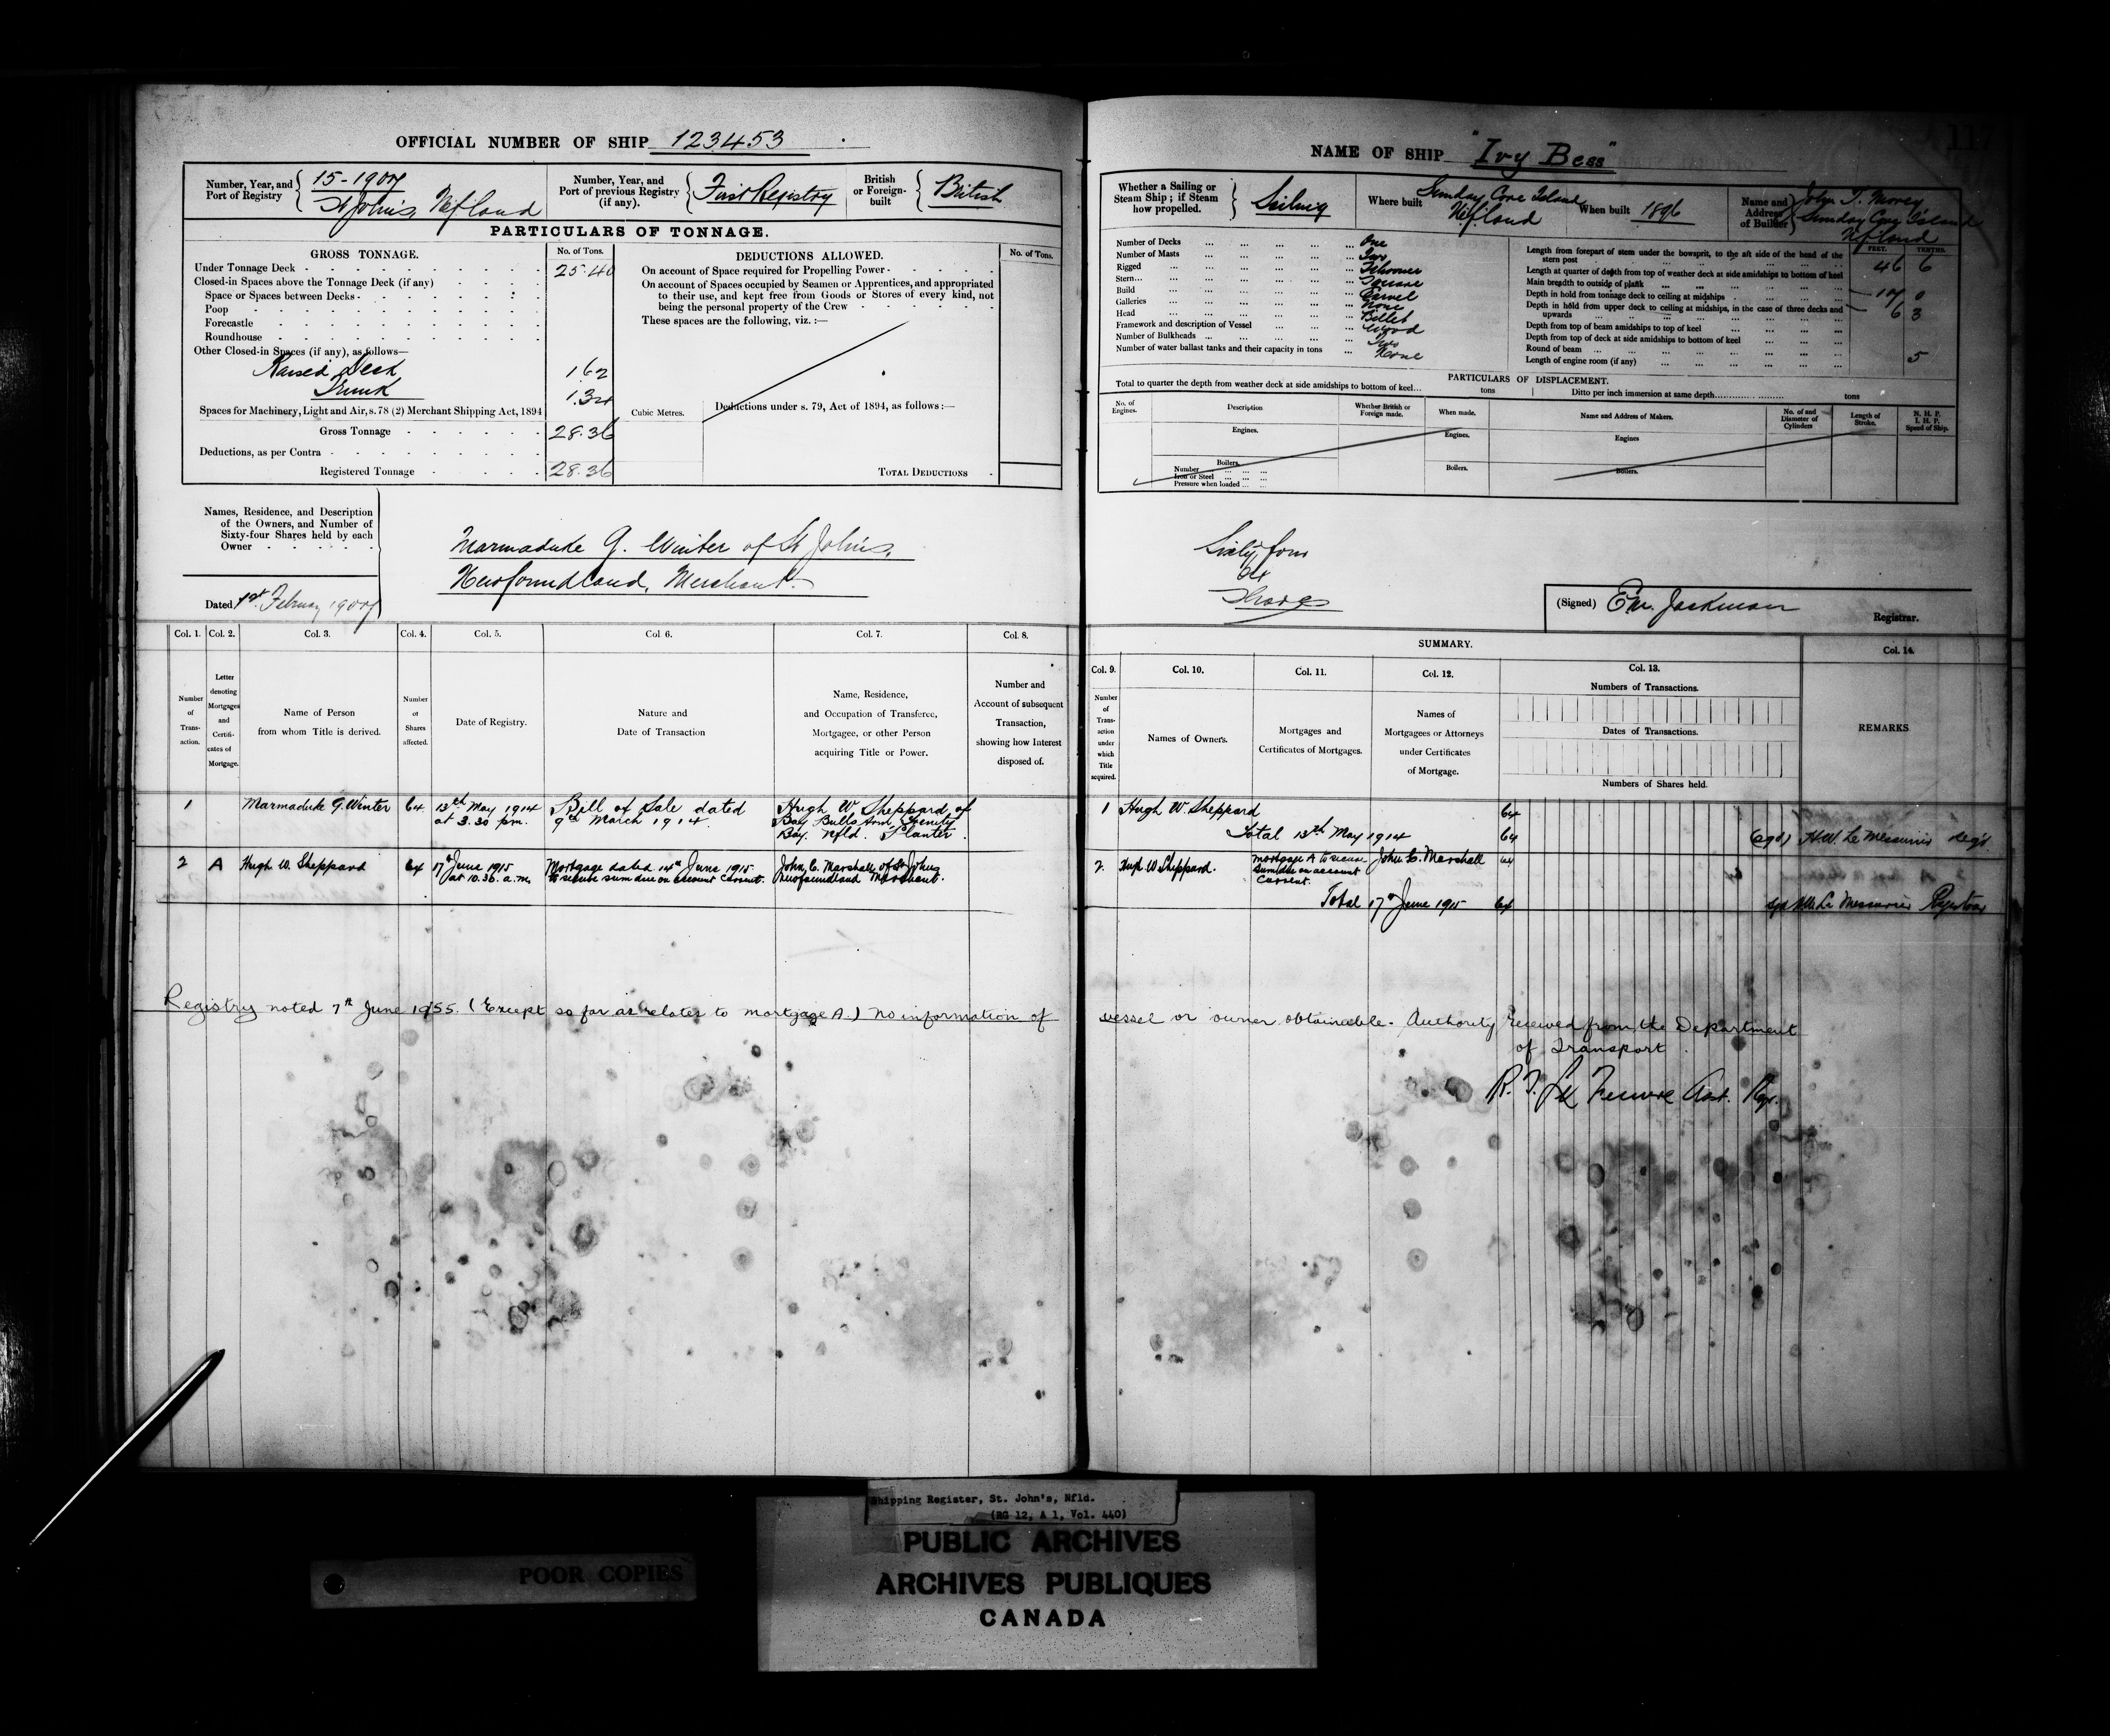 OFFICIAL NUMBER OF SHIP 123453
Number, Year, and Port of Registry
15-1907
St John's, Nfland
Number, Year, and Port of previous Registry (if any).
First Registry
British or Foreign-built
British
PARTICULARS OF TONNAGE.
GROSS TONNAGE.
No. of Tons.
Under Tonnage Deck 25.40
Closed-in Spaces above the Tonnage Deck (if any)
Space or Spaces between Decks
Poop
Forecastle
Roundhouse
Other Closed-in Spaces (if any), as follows—
Raised Deck 1.62
Trunk 1.34
Spaces for Machinery, Light and Air, s. 78 (2) Merchant Shipping Act, 1894
Gross Tonnage 28.36
Deductions, as per Contra
Registered Tonnage 28.36
DEDUCTIONS ALLOWED.
No. of Tons.
On account of Space required for Propelling Power
On account of Spaces occupied by Seamen or Apprentices, and appropriated
to their use, and kept free from Goods or Stores of every kind, not
being the personal property of the Crew
These spaces are the following, viz. :—
Cubic Metres.
Deductions under s. 79, Act of 1894, as follows :—
TOTAL DEDUCTIONS
Names, Residence, and Description
of the Owners, and Number of
Sixty-four Shares held by each
Owner
Dated 1st February 1907
Marmaduke G. Winter of St John's,
Newfoundland, Merchant.
Col. 1. Col. 2. Col. 3. Col. 4. Col. 5. Col. 6. Col. 7. Col. 8.
Number of Transaction.
Letter denoting Mortgages and Certificates of Mortgage.
Name of Person from whom Title is derived.
Number of Shares affected.
Date of Registry.
Nature and Date of Transaction
Name, Residence, and Occupation of Transferee, Mortgagee, or other Person acquiring Title or Power.
Number and Account of subsequent Transaction, showing how Interest disposed of.
1 Marmaduke G. Winter 64 13th May 1914 at 3.30 p.m. Bill of Sale dated 9th March 1914. Hugh W. Sheppard of Bay Bulls Arm, Trinity Bay. Nfld. Planter.
2 A Hugh W. Sheppard 64 17th June 1915 at 10.30. a.m. Mortgage dated 14th June 1915 to secure sum due on account Current. John C. Marshall of St Johns Newfoundland Merchant.
Registry noted 7th June 1955. (Except so far as relates to mortgage A.) No information of
NAME OF SHIP "Ivy Bess"
Whether a Sailing or Steam Ship; if Steam how propelled.
Sailing
Where built
Sunday Cove Island
Nfland
When built 1896
Name and Address of Builder
John T. Morey
Sunday Cove Island
Nfland
Number of Decks One
Number of Masts Two
Rigged Schooner
Stern Square
Build Carvel
Galleries None
Head Billet
Framework and description of Vessel Wood
Number of Bulkheads Two
Number of water ballast tanks and their capacity in tons None
FEET. TENTHS.
Length from forepart of stem under the bowsprit, to the aft side of the head of the stern post 46 6
Length at quarter of depth from top of weather deck at side amidships to bottom of keel
Main breadth to outside of plank 17 0
Depth in hold from tonnage deck to ceiling at midships 6 3
Depth in hold from upper deck to ceiling at midships, in the case of three decks and upwards
Depth from top of beam amidships to top of keel
Depth from top of deck at side amidships to bottom of keel
Round of beam 5
Length of engine room (if any)
PARTICULARS OF DISPLACEMENT.
Total to quarter the depth from weather deck at side amidships to bottom of keel... tons Ditto per inch immersion at same depth tons
No. of Engines.
Description
Whether British or Foreign made.
When made.
Name and Address of Makers.
No. of and Diameter of Cylinders
Length of Stroke.
N. H. P. I. H. P. Speed of Ship.
Engines. Engines. Engines
Boilers. Boilers. Boilers.
Number
Iron or Steel
Pressure when loaded
Sixty four
64
Shares
(Signed) E.M. Jackman
Registrar.
SUMMARY.
Col. 9. Col. 10. Col. 11. Col. 12. Col. 13. Col. 14.
Number of Transaction under which Title acquired.
Names of Owners.
Mortgages and Certificates of Mortgages.
Names of Mortgagees or Attorneys under Certificates of Mortgage.
Numbers of Transactions.
Dates of Transactions.
Numbers of Shares held.
REMARKS
1 Hugh W. Sheppard 64
Total 13th May 1914 64 (sgd) H.W. Le Messurier Regr.
2. Hugh W. Sheppard. Mortgage A to secure sum due on account Current. John C. Marshall 64
Total 17th June 1915 64 sgd H.W. Le Messurier Registrar
vessel or owner obtainable. Authority received from the Department
of Transport.
Asst. Rgr.
Shipping Register, St. John's, Nfld.
(RG 12, A 1, Vol. 440)
PUBLIC ARCHIVES
ARCHIVES PUBLIQUES
CANADA
POOR COPIES